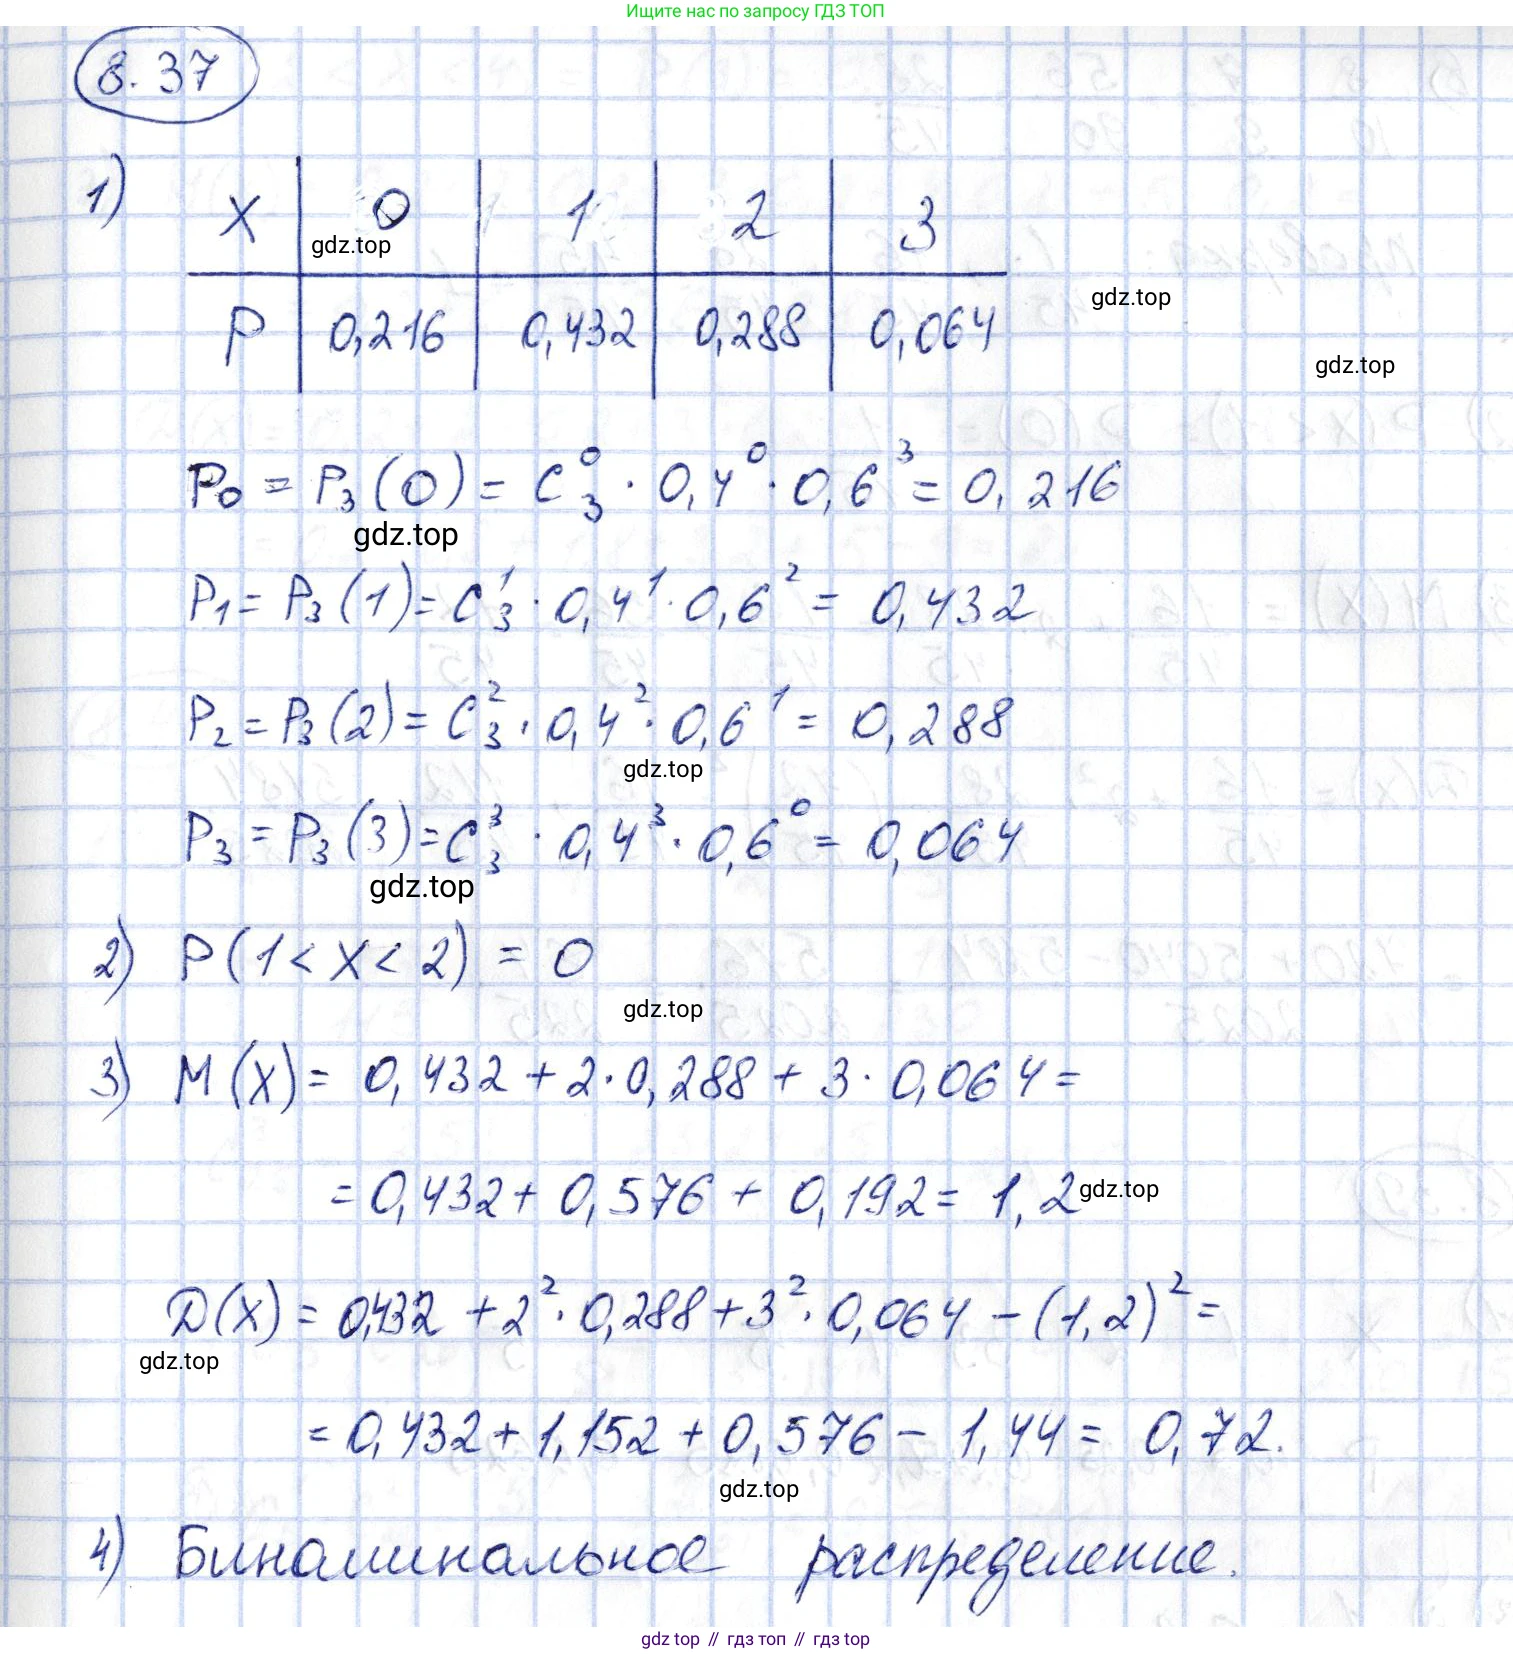 Ищите нас по запросу ГДЗ ТОП
8.37
1) X | 0 | 1 | 2 | 3
gdz.top
P | 0,216 | 0,432 | 0,288 | 0,064
gdz.top
gdz.top
P₀ = P₃(0) = C₃⁰ · 0,4⁰ · 0,6³ = 0,216
gdz.top
P₁ = P₃(1) = C₃¹ · 0,4¹ · 0,6² = 0,432
P₂ = P₃(2) = C₃² · 0,4² · 0,6¹ = 0,288
gdz.top
P₃ = P₃(3) = C₃³ · 0,4³ · 0,6⁰ = 0,064
gdz.top
2) P(1 < X < 2) = 0
gdz.top
3) M(X) = 0,432 + 2 · 0,288 + 3 · 0,064 =
= 0,432 + 0,576 + 0,192 = 1,2
gdz.top
D(X) = 0,432 + 2² · 0,288 + 3² · 0,064 − (1,2)² =
gdz.top
= 0,432 + 1,152 + 0,576 − 1,44 = 0,72.
gdz.top
4) Бинаминальное распределение.
gdz top // гдз топ // гдз top